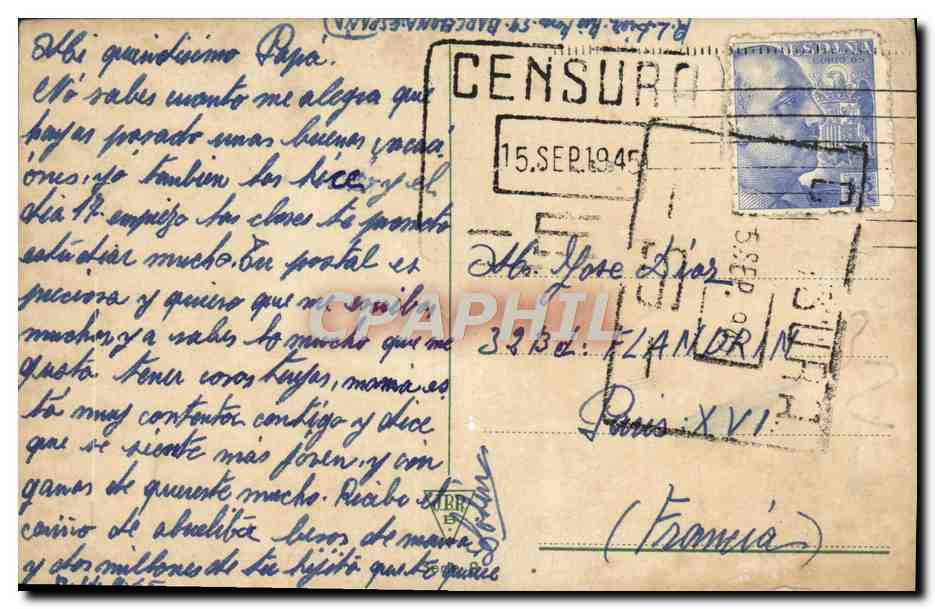 R. L. Diaz. BARCELONA-ESPAÑA
Mi queridisimo Papá.
Nó sabes cuanto me alegra que
hayas pasado unas buenas vacaci
ónes, yó tambien las híce, y el
dia 17 empiezo las clases te prometo
estudiar mucho. Tu postal es
preciosa y quiero que me envies
muchas, ya sabes lo mucho que me
gusta tener cosas tuyas, mamá es
tá muy contenta contigo y dice
que se siente más jóven, y con
ganas de quererte mucho. Recibe el
cariño de abuelita besos de mamá
y dos millones de tu hijita que te quiere
CENSURA
15.SEP.1945
ESPAÑA
CORREOS
Mr. Jose Díaz
32 Bd: FLANDRIN
Paris XVI
(Francia)
CENSURA
5.SEP.
JBR
B
Serie
CPAPHIL